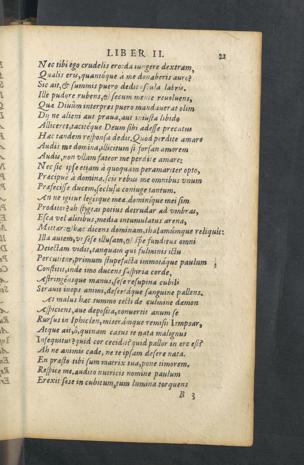 LIBER II. 22
Nec tibi ego crudelis eroda iungere dextram,
Qualis eris, quantóque à me donaberis auro?
Sic ait, & summis puero dedit oscula labris.
Ille pudore rubens, & secum mente reuoluens,
Quæ Diuûm interpres puero mandauerat olim
Dij ne alieni aut praua, aut iniusta libido
Alliceret, tacitéque Deum sibi adesse precatus
Hac tandem responsa dedit. Quod perdite amare
Audis me domina, illicitum si forsan amorem
Audis, non ullam fateor me perdite amare:
Nec sic ipse etiam à quoquam peramariter opto,
Præcipuè à domina, seu rebus me omnibus unum
Præfecisse ducem, seclusa coniuge tantum.
An ne igitur legisque mea, dominique mei sim
Proditor? ah stygias potius detrudar ad umbras,
Esca vel alitibus, media intumulatus arena,
Mittar: & hæc dicens dominam, thalamumque reliquit.
Illa autem, ut sese illusam, & spe funditus omni
Deiectam vidit, tanquam qui fulminis ictu
Percutitur, primum stupefacta immotáque paulum
Constitit, inde imo ducens suspiria corde,
Astringénsque manus, sese resupina cubili
Strauit inops animi, deseráque sanguine pallens.
At malus hæc summo tecti de culmine dæmon
Aspiciens, auæ deposita, conuertit anum se
Rursus in Iphiclen, miseránque remisit Iempsar,
Atque ait, ô, quinam casus te nata malignus
Insequitur? quid cor cecidit? quid pallor in ore est?
Ah ne animis cade, ne te ipsam desere nata.
En præsto tibi sum matrix tua, pone timorem.
Respice me, audito nutricis nomine paulum
Erexit sese in cubitum, tum lumina torquens
B 3